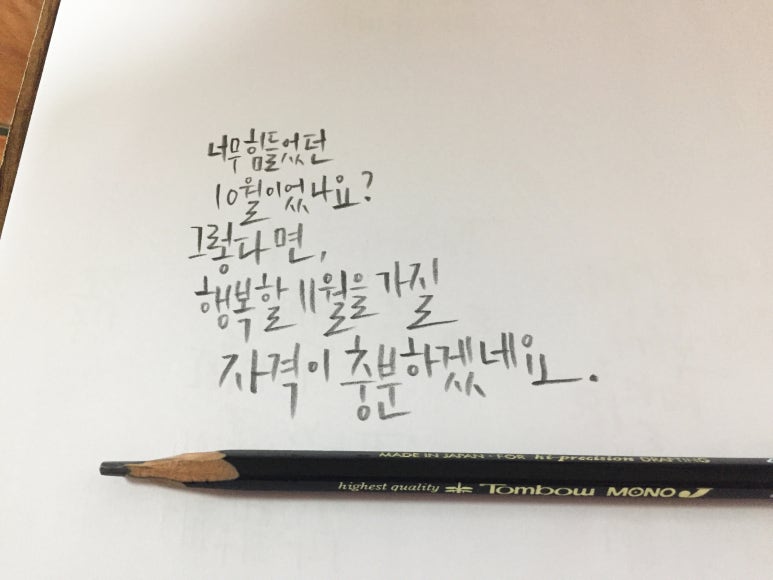 너무 힘들었던
10월이었나요?
그렇다면,
행복할 11월을 가질
자격이 충분하겠네요.
MADE IN JAPAN · FOR hi-precision DRAFTING
highest quality Tombow MONO J